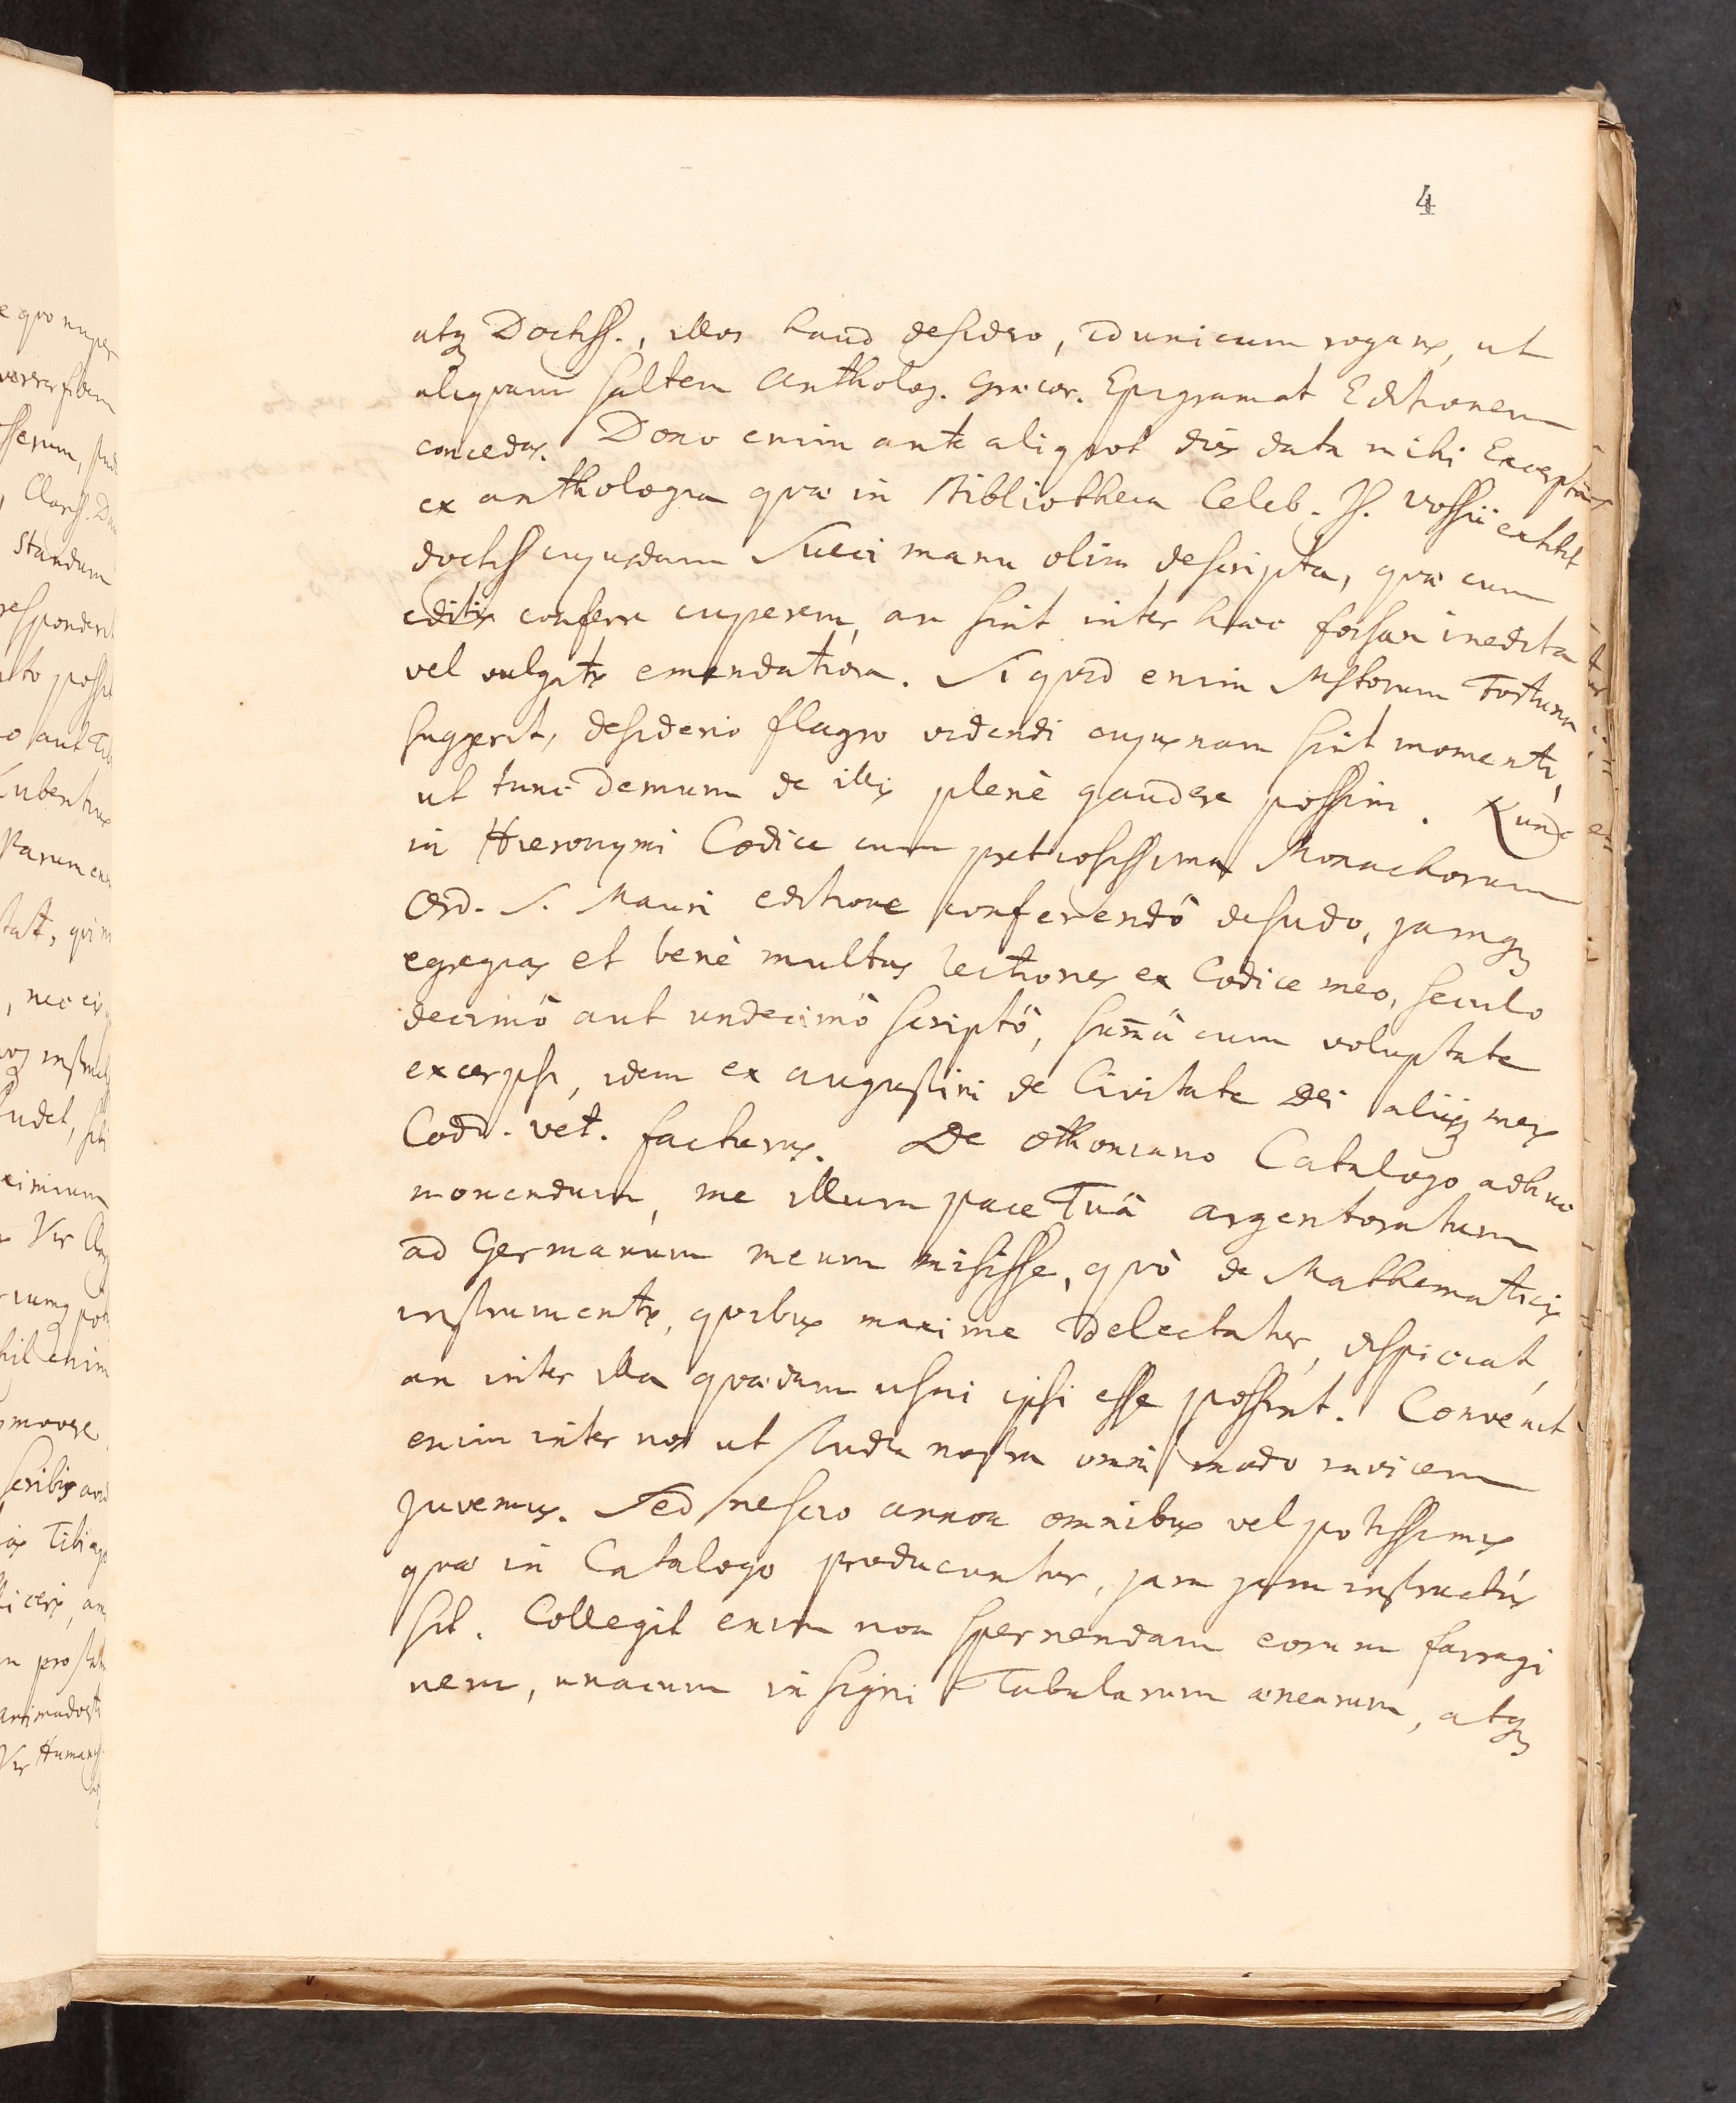 4
atq Doctiss., illos haud desidero, id unicum rogans, ut
aliquam saltem Antholog. Græcor. Epigramat Editionem
concedas. Dono enim ante aliquot dies data mihi Excerpta
ex anthologia quæ in Bibliotheca Celeb. Is. Vossii exstitit
doctiss cujusdam Sueci manu olim descripta, quæ cum
editis conferre cuperem, an sint inter hæc forsan inedita
vel vulgatis emendatiora. Si quid enim Mstorum Fortuna
suggerit, desiderio flagro videndi cujusnam sint momenti,
ut tunc demum de illis plenè gaudere possim. Nunc
in Hieronymi Codice cum pretiosissima Monachorum
Ord. S. Mauri editione conferendô desudo, jamq
egregias et benè multas lectiones ex Codice meo, seculo
decimô aut undecimô scriptô, sum̄â cum voluptate
excerpsi, idem ex augustini de Civitate Dei aliisq meis
Codd. vet. facturus. De Othoniano Catalogo adhuc
monendum, me illum pace Tuâ argentoratum
ad Germanum meum misisse, quò de Mathematicis
instrumentis, quibus maxime delectatur, dispiciat,
an inter illa quædam usui ipsi esse possint. Convenit
enim inter nos ut studia nostra omni modo invicem
juvemus. Sed nescio annon omnibus vel potissimis
quæ in Catalogo producuntur, jam jam instructus
sit. Collegit enim non spernendam eorum farragi
nem, unacum insigni Tabularum ænearum, atq